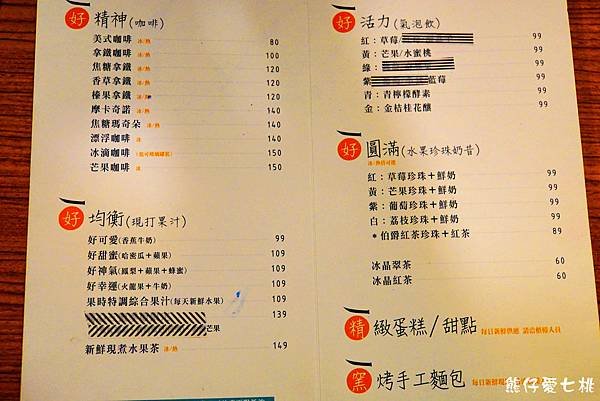 好 精神(咖啡)
美式咖啡 冰/熱 80
拿鐵咖啡 冰/熱 100
焦糖拿鐵 冰/熱 120
香草拿鐵 冰/熱 120
榛果拿鐵 冰/熱 140
摩卡奇諾 冰/熱 140
焦糖瑪奇朵 冰/熱 140
漂浮咖啡 冰 140
冰滴咖啡 150
芒果咖啡 冰 150
好 均衡(現打果汁)
好可愛(香蕉牛奶) 99
好甜蜜(哈密瓜+蘋果) 109
好神氣(鳳梨+蘋果+蜂蜜) 109
好幸運(火龍果+牛奶) 109
果時特調綜合果汁(每天新鮮水果) 109
芒果 139
新鮮現煮水果茶 冰/熱 149
好 活力(氣泡飲)
紅:草莓/ 99
黃:芒果/水蜜桃 99
綠:
紫 藍莓 99
青:青檸檬酵素 99
金:金桔桂花釀 99
好 圓滿(水果珍珠奶昔)
紅:草莓珍珠+鮮奶 99
黃:芒果珍珠+鮮奶 99
紫:葡萄珍珠+鮮奶 99
白:荔枝珍珠+鮮奶 99
*伯爵紅茶珍珠+紅茶 89
冰晶翠茶 60
冰晶紅茶 60
精 緻蛋糕/甜點 每日新鮮供應 請洽櫃檯人員
窯 烤手工麵包 每日新鮮現
熊仔愛七桃